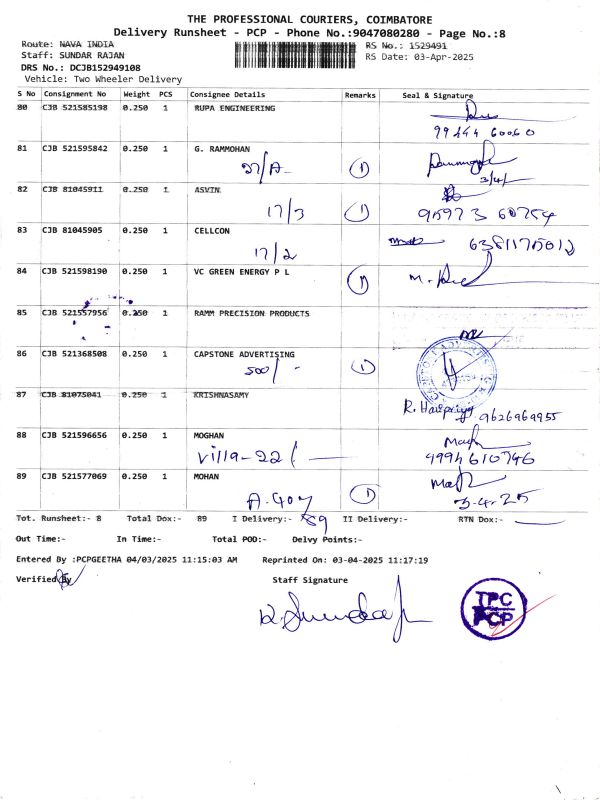 THE PROFESSIONAL COURIERS, COIMBATORE
Delivery Runsheet - PCP - Phone No.:9047080280 - Page No.:8
Route: NAVA INDIA RS No.: 1529491
Staff: SUNDAR RAJAN RS Date: 03-Apr-2025
DRS No.: DCJB152949108
Vehicle: Two Wheeler Delivery
S No Consignment No Weight PCS Consignee Details Remarks Seal & Signature
80 CJB 521585198 0.250 1 RUPA ENGINEERING
99444 60060
81 CJB 521595842 0.250 1 G. RAMMOHAN
27/A- 1
3/4/
82 CJB 81045911 0.250 1 ASVIN
17/3 1 95973 60754
83 CJB 81045905 0.250 1 CELLCON
17/2 6381175012
84 CJB 521598190 0.250 1 VC GREEN ENERGY P L
1
85 CJB 521557956 0.250 1 RAMM PRECISION PRODUCTS
86 CJB 521368508 0.250 1 CAPSTONE ADVERTISING
500/- 1
87 CJB 81075041 0.250 1 KRISHNASAMY
R. Haripriya 9626969955
88 CJB 521596656 0.250 1 MOGHAN
Villa-22/ 9994610746
89 CJB 521577069 0.250 1 MOHAN
1 3-4-25
Tot. Runsheet:- 8 Total Dox:- 89 I Delivery:- 89 II Delivery:- RTN Dox:-
Out Time:- In Time:- Total POD:- Delvy Points:-
Entered By :PCPGEETHA 04/03/2025 11:15:03 AM Reprinted On: 03-04-2025 11:17:19
Verified By Staff Signature
TPC
PCP